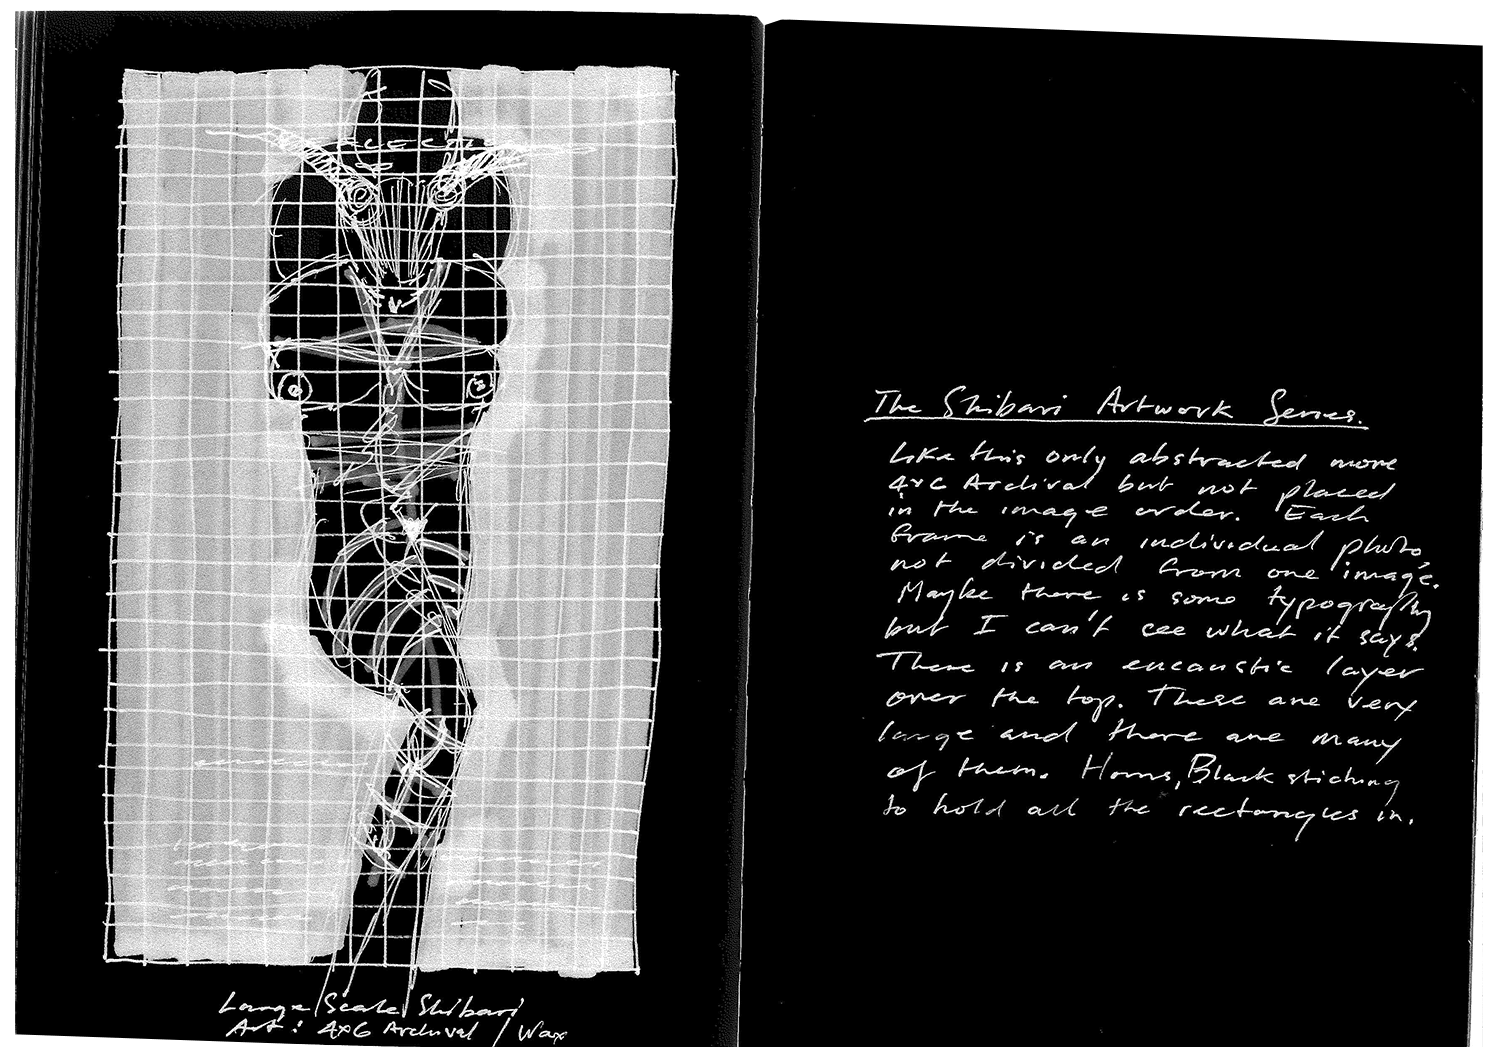 Large Scale Shibari
Art: 4x6 Archival / Wax
The Shibari Artwork Series.
Like this only abstracted more
4x6 Archival but not placed
in the image order. Each
frame is an individual photo,
not divided from one image.
Maybe there is some typography
but I can't see what it says.
There is an encaustic layer
over the top. These are very
large and there are many
of them. Horns, Black stiching
to hold all the rectangles in.